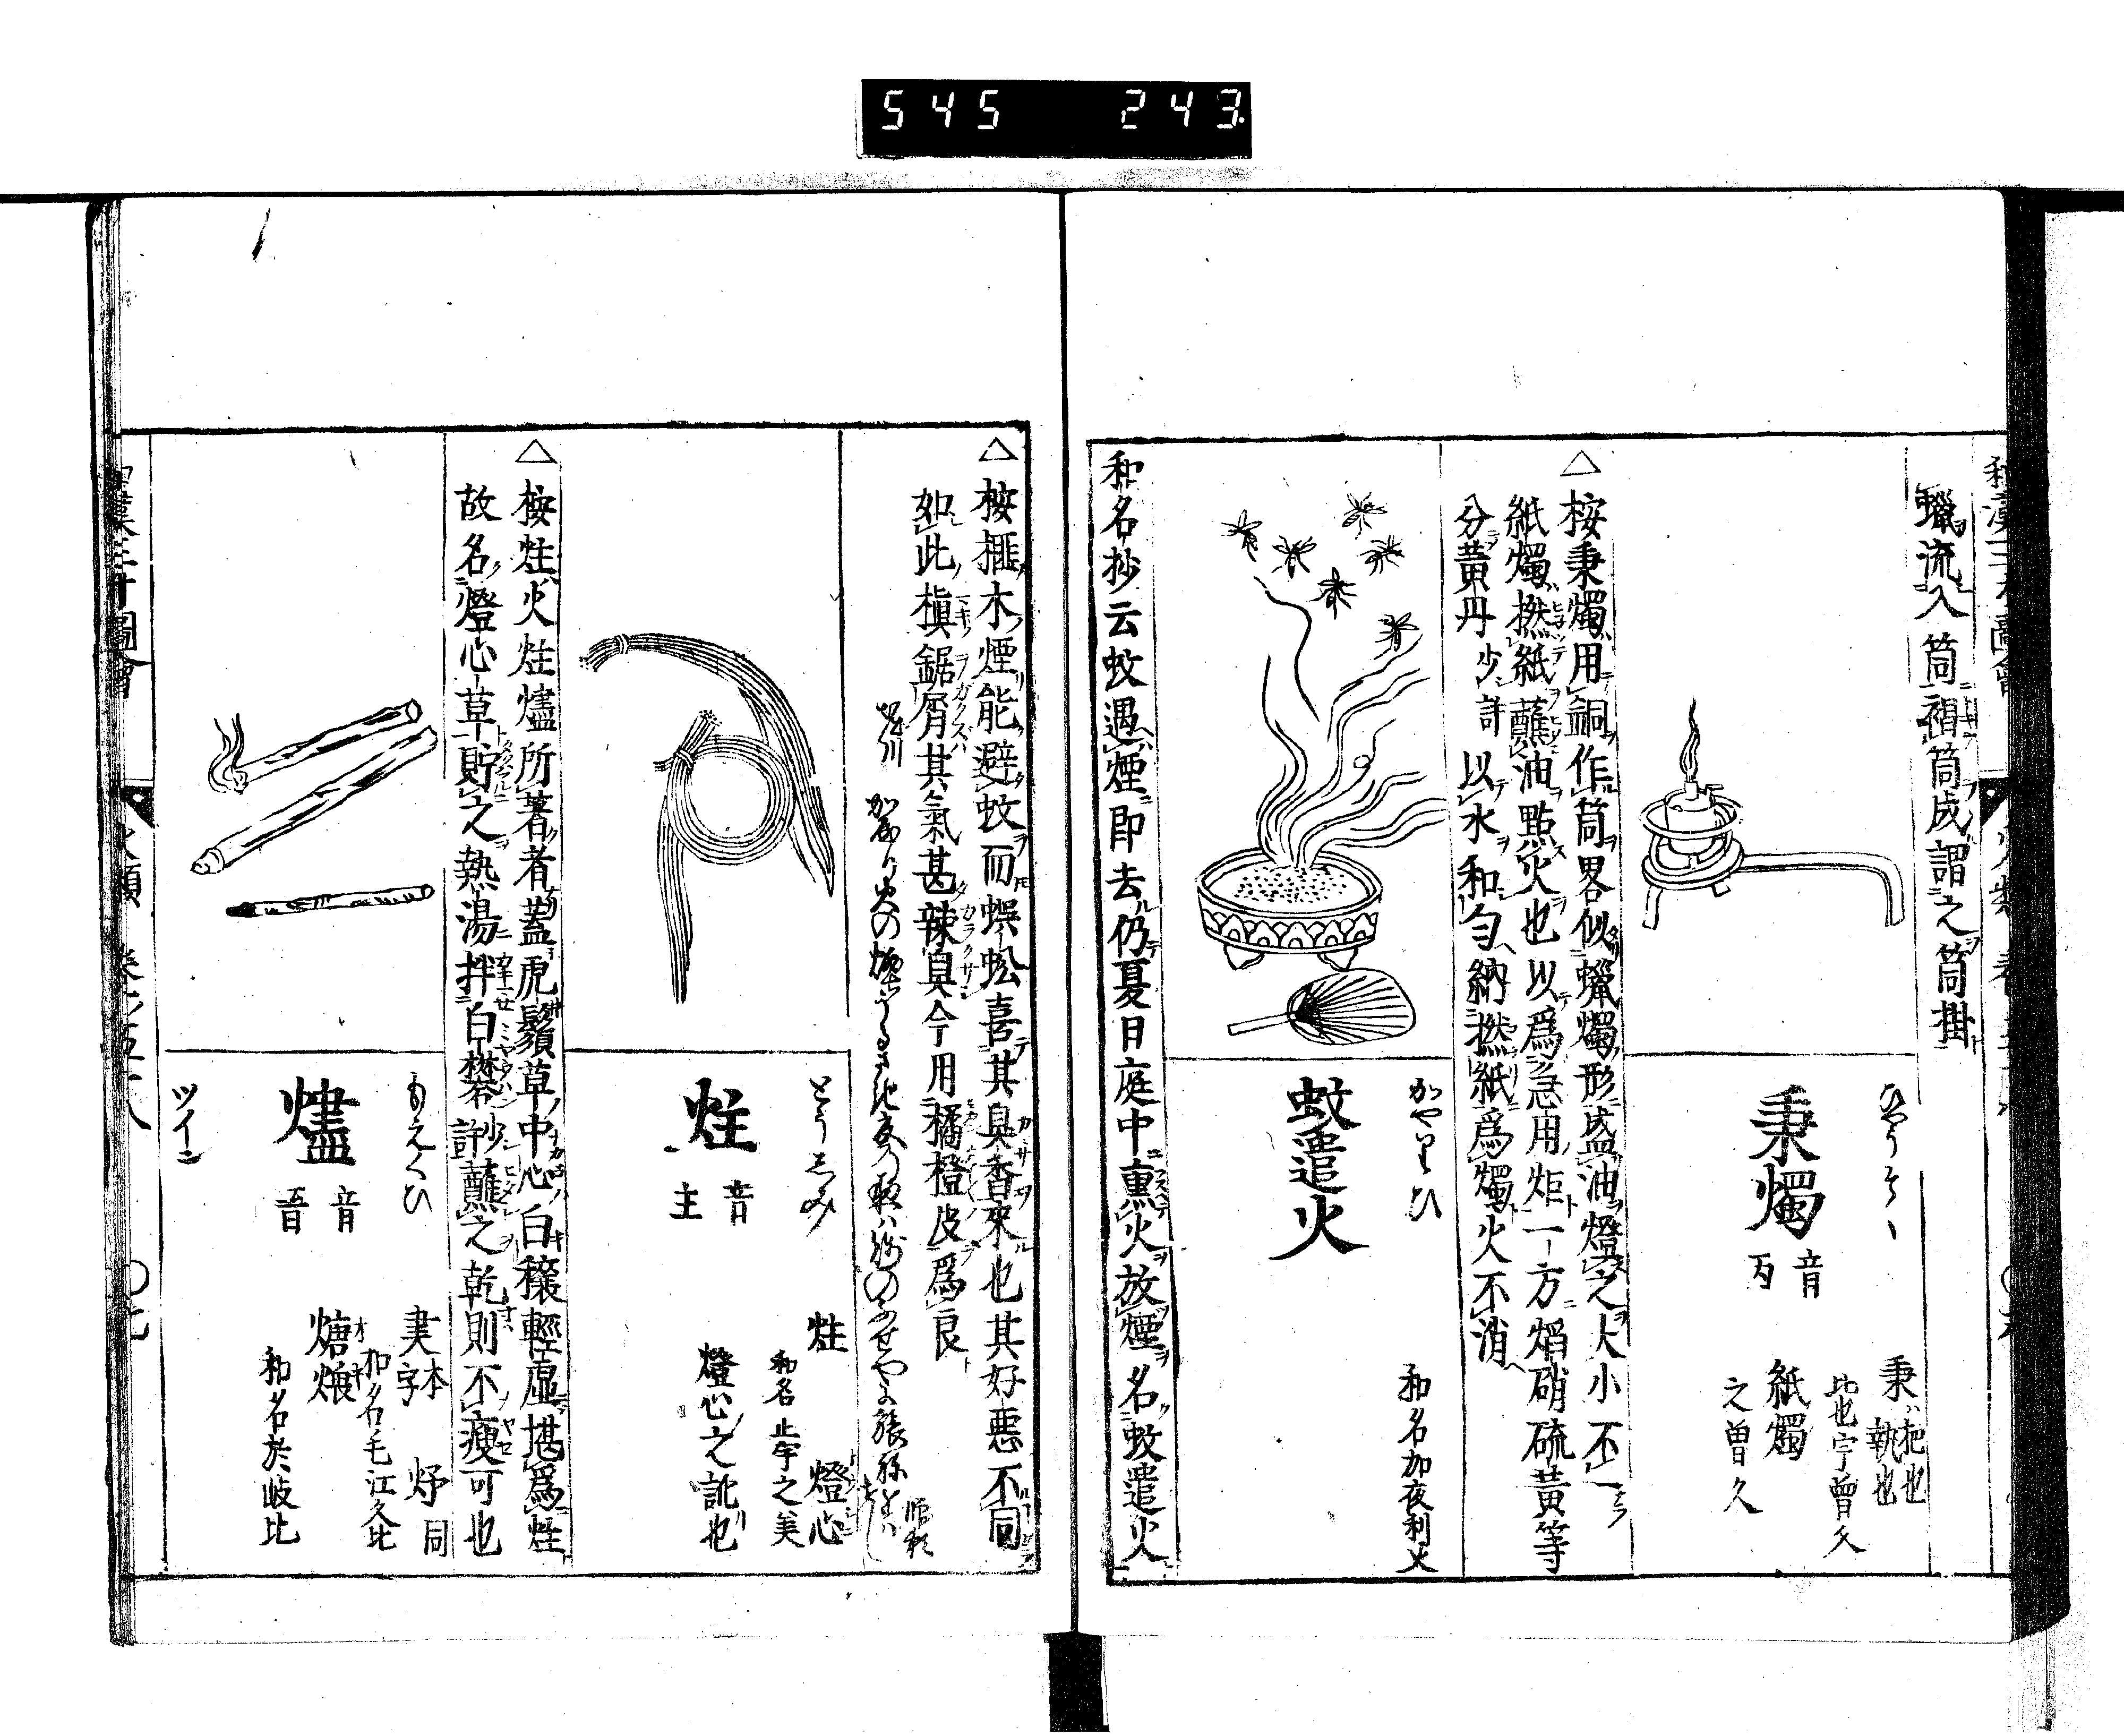 545 243
蠟流入筒褶筒成謂之筒掛
秉燭
音
丙
秉ハ把也
執也
紙燭
之曽久
△按秉燭用銅作筒畧似蠟燭形盛油燈之大小不一
紙燭撚紙蘸油點火也以爲急用炬一方焰硝硫黃等
分黃丹少許以水和勻納撚紙爲燭火不消
かやりひ
蚊遣火
和名加夜利火
和名抄云蚊遇煙即去仍夏日庭中熏火放煙名蚊遣火
△按榧木煙能避蚊而蜈蚣喜其臭香來也其好惡不同
如此槇鋸屑其氣甚辣臭今用橘橙皮爲良
とうしみ
炷
音
主
炷
燈心
和名止宇之美
燈心之訛也
△按炷火炷燼所著者蓋虎鬚草中心白穰輕虛堪爲炷
故名燈心草貯之熱湯拌白礬少許蘸之乾則不瘦可也
もえくひ
燼
音
ツイン
本字
同
和名毛江久比
和名於岐比